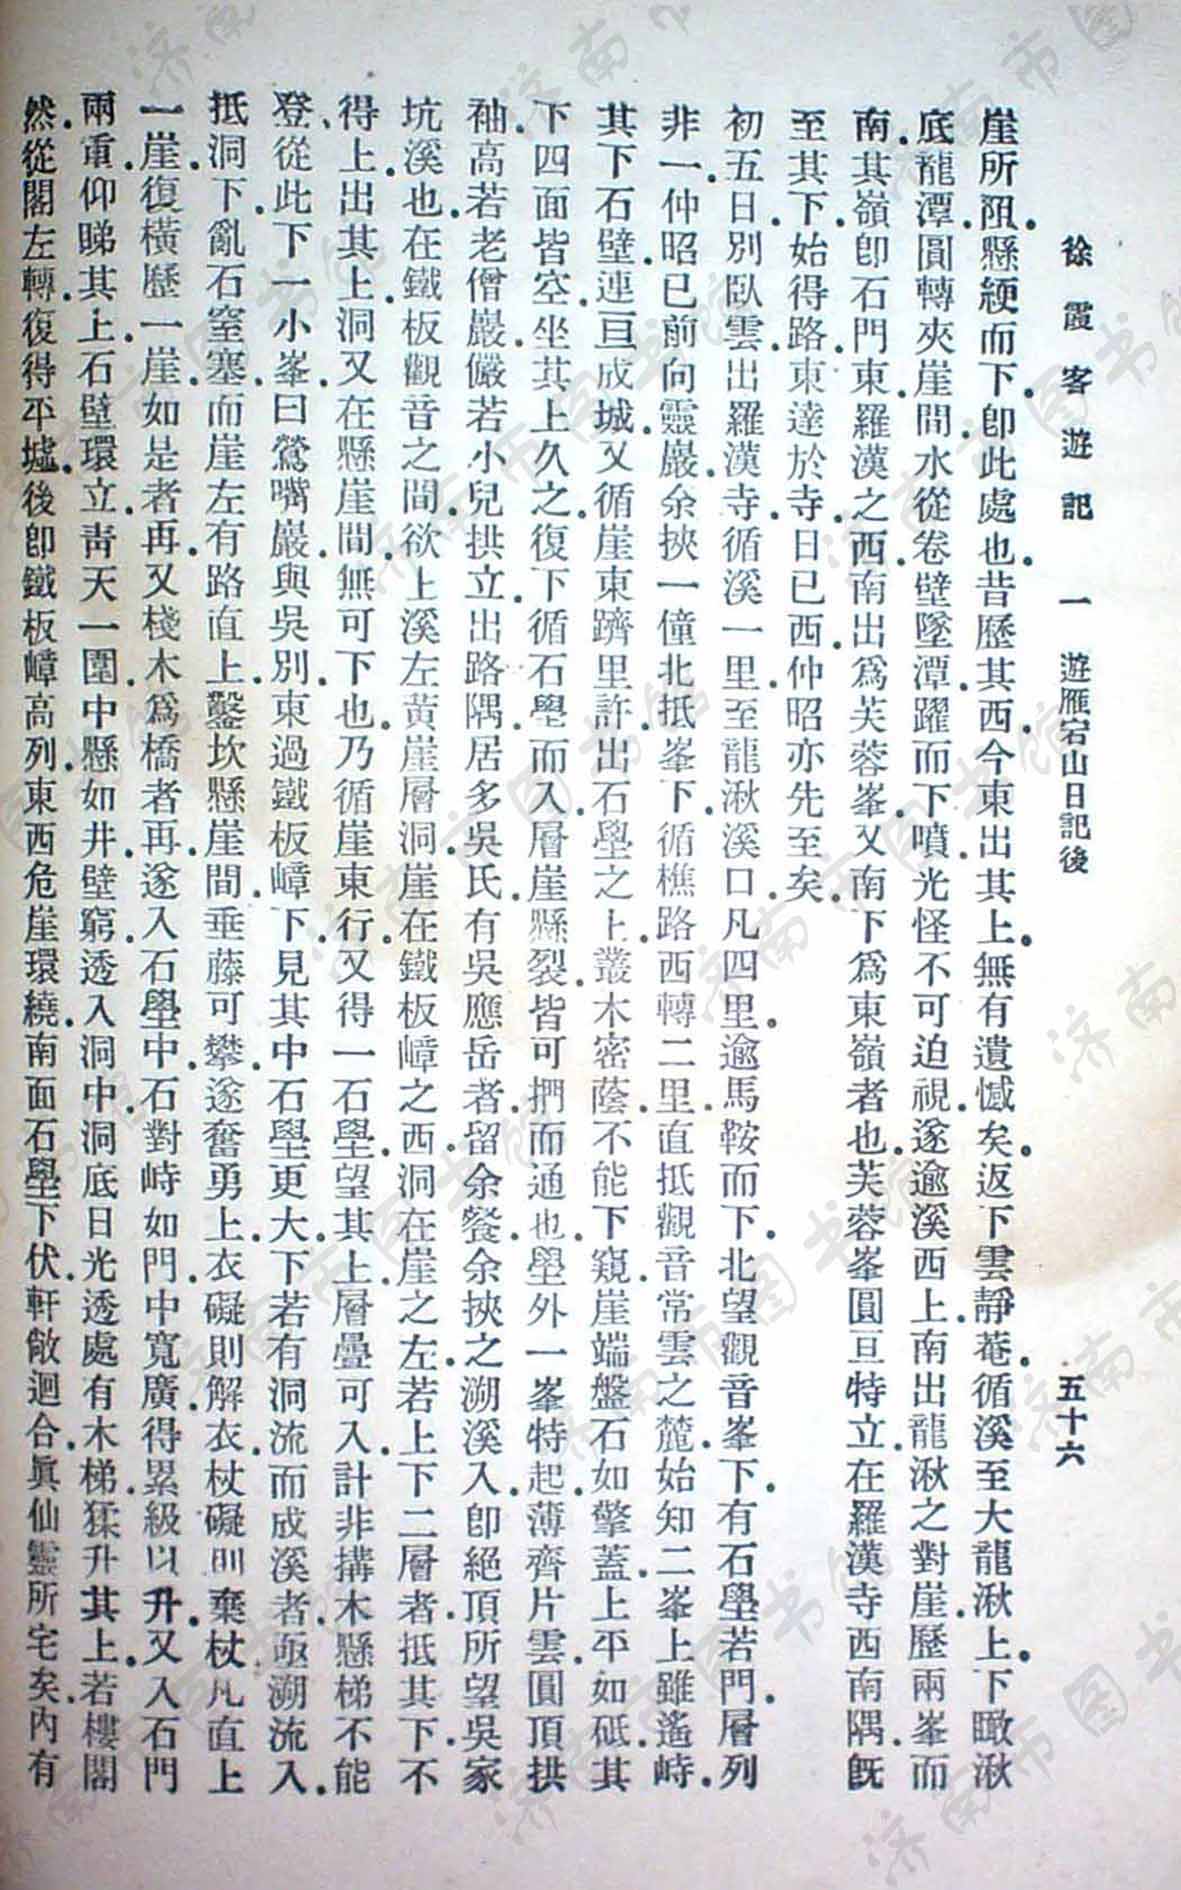 徐霞客遊記 一 遊雁宕山日記後 五十六
崖所阻.懸綆而下.卽此處也.昔歷其西.今東出其上.無有遺憾矣.返下雲靜菴.循溪至大龍湫上.下瞰湫
底.龍潭圓轉夾崖間.水從卷壁墜潭.躍而下噴.光怪不可迫視.遂逾溪西上.南出龍湫之對崖.歷兩峯而
南.其嶺卽石門東.羅漢之西.南出爲芙蓉峯.又南下爲東嶺者也.芙蓉峯圓亘特立.在羅漢寺西南隅.旣
至其下.始得路.東達於寺.日已西.仲昭亦先至矣.
初五日.別臥雲.出羅漢寺.循溪一里.至龍湫溪口.凡四里.逾馬鞍而下.北望觀音峯下.有石璺若門.層列
非一.仲昭已前向靈巖.余挾一僮北抵峯下.循樵路西轉二里.直抵觀音常雲之麓.始知二峯上雖遙峙.
其下石壁.連亘成城.又循崖東躋里許.出石璺之上.叢木密蔭.不能下窺.崖端盤石如擎蓋.上平如砥.其
下四面皆空.坐其上久之.復下循石璺而入.層崖懸裂.皆可捫而通也.璺外一峯特起.薄齊片雲.圓頂拱
袖.高若老僧巖.儼若小兒拱立.出路隅.居多吳氏.有吳應岳者.留余餐.余挾之溯溪入.卽絕頂所望吳家
坑溪也.在鐵板觀音之間.欲上溪左黃崖層洞.崖在鐵板嶂之西.洞在崖之左.若上下二層者.抵其下.不
得上.出其上.洞又在懸崖間.無可下也.乃循崖東行.又得一石璺.望其上.層疊可入.計非搆木懸梯不能
登.從此下一小峯.曰鶯嘴巖.與吳別.東過鐵板嶂下.見其中石璺更大.下若有洞流而成溪者.亟溯流入.
抵洞下.亂石窒塞.而崖左有路直上.鑿坎懸崖間.垂藤可攀.遂奮勇上.衣礙則解衣.杖礙則棄杖.凡直上
一崖.復橫歷一崖.如是者再.又棧木爲橋者再.遂入石璺中.石對峙如門.中寬廣.得累級以升.又入石門
兩重.仰睇其上.石壁環立.靑天一圍.中懸如井.壁窮.透入洞中.洞底日光透處.有木梯.猱升其上.若樓閣
然.從閣左轉.復得平墟.後卽鐵板嶂高列.東西危崖環繞.南面石璺下伏.軒敞迴合.眞仙靈所宅矣.內有